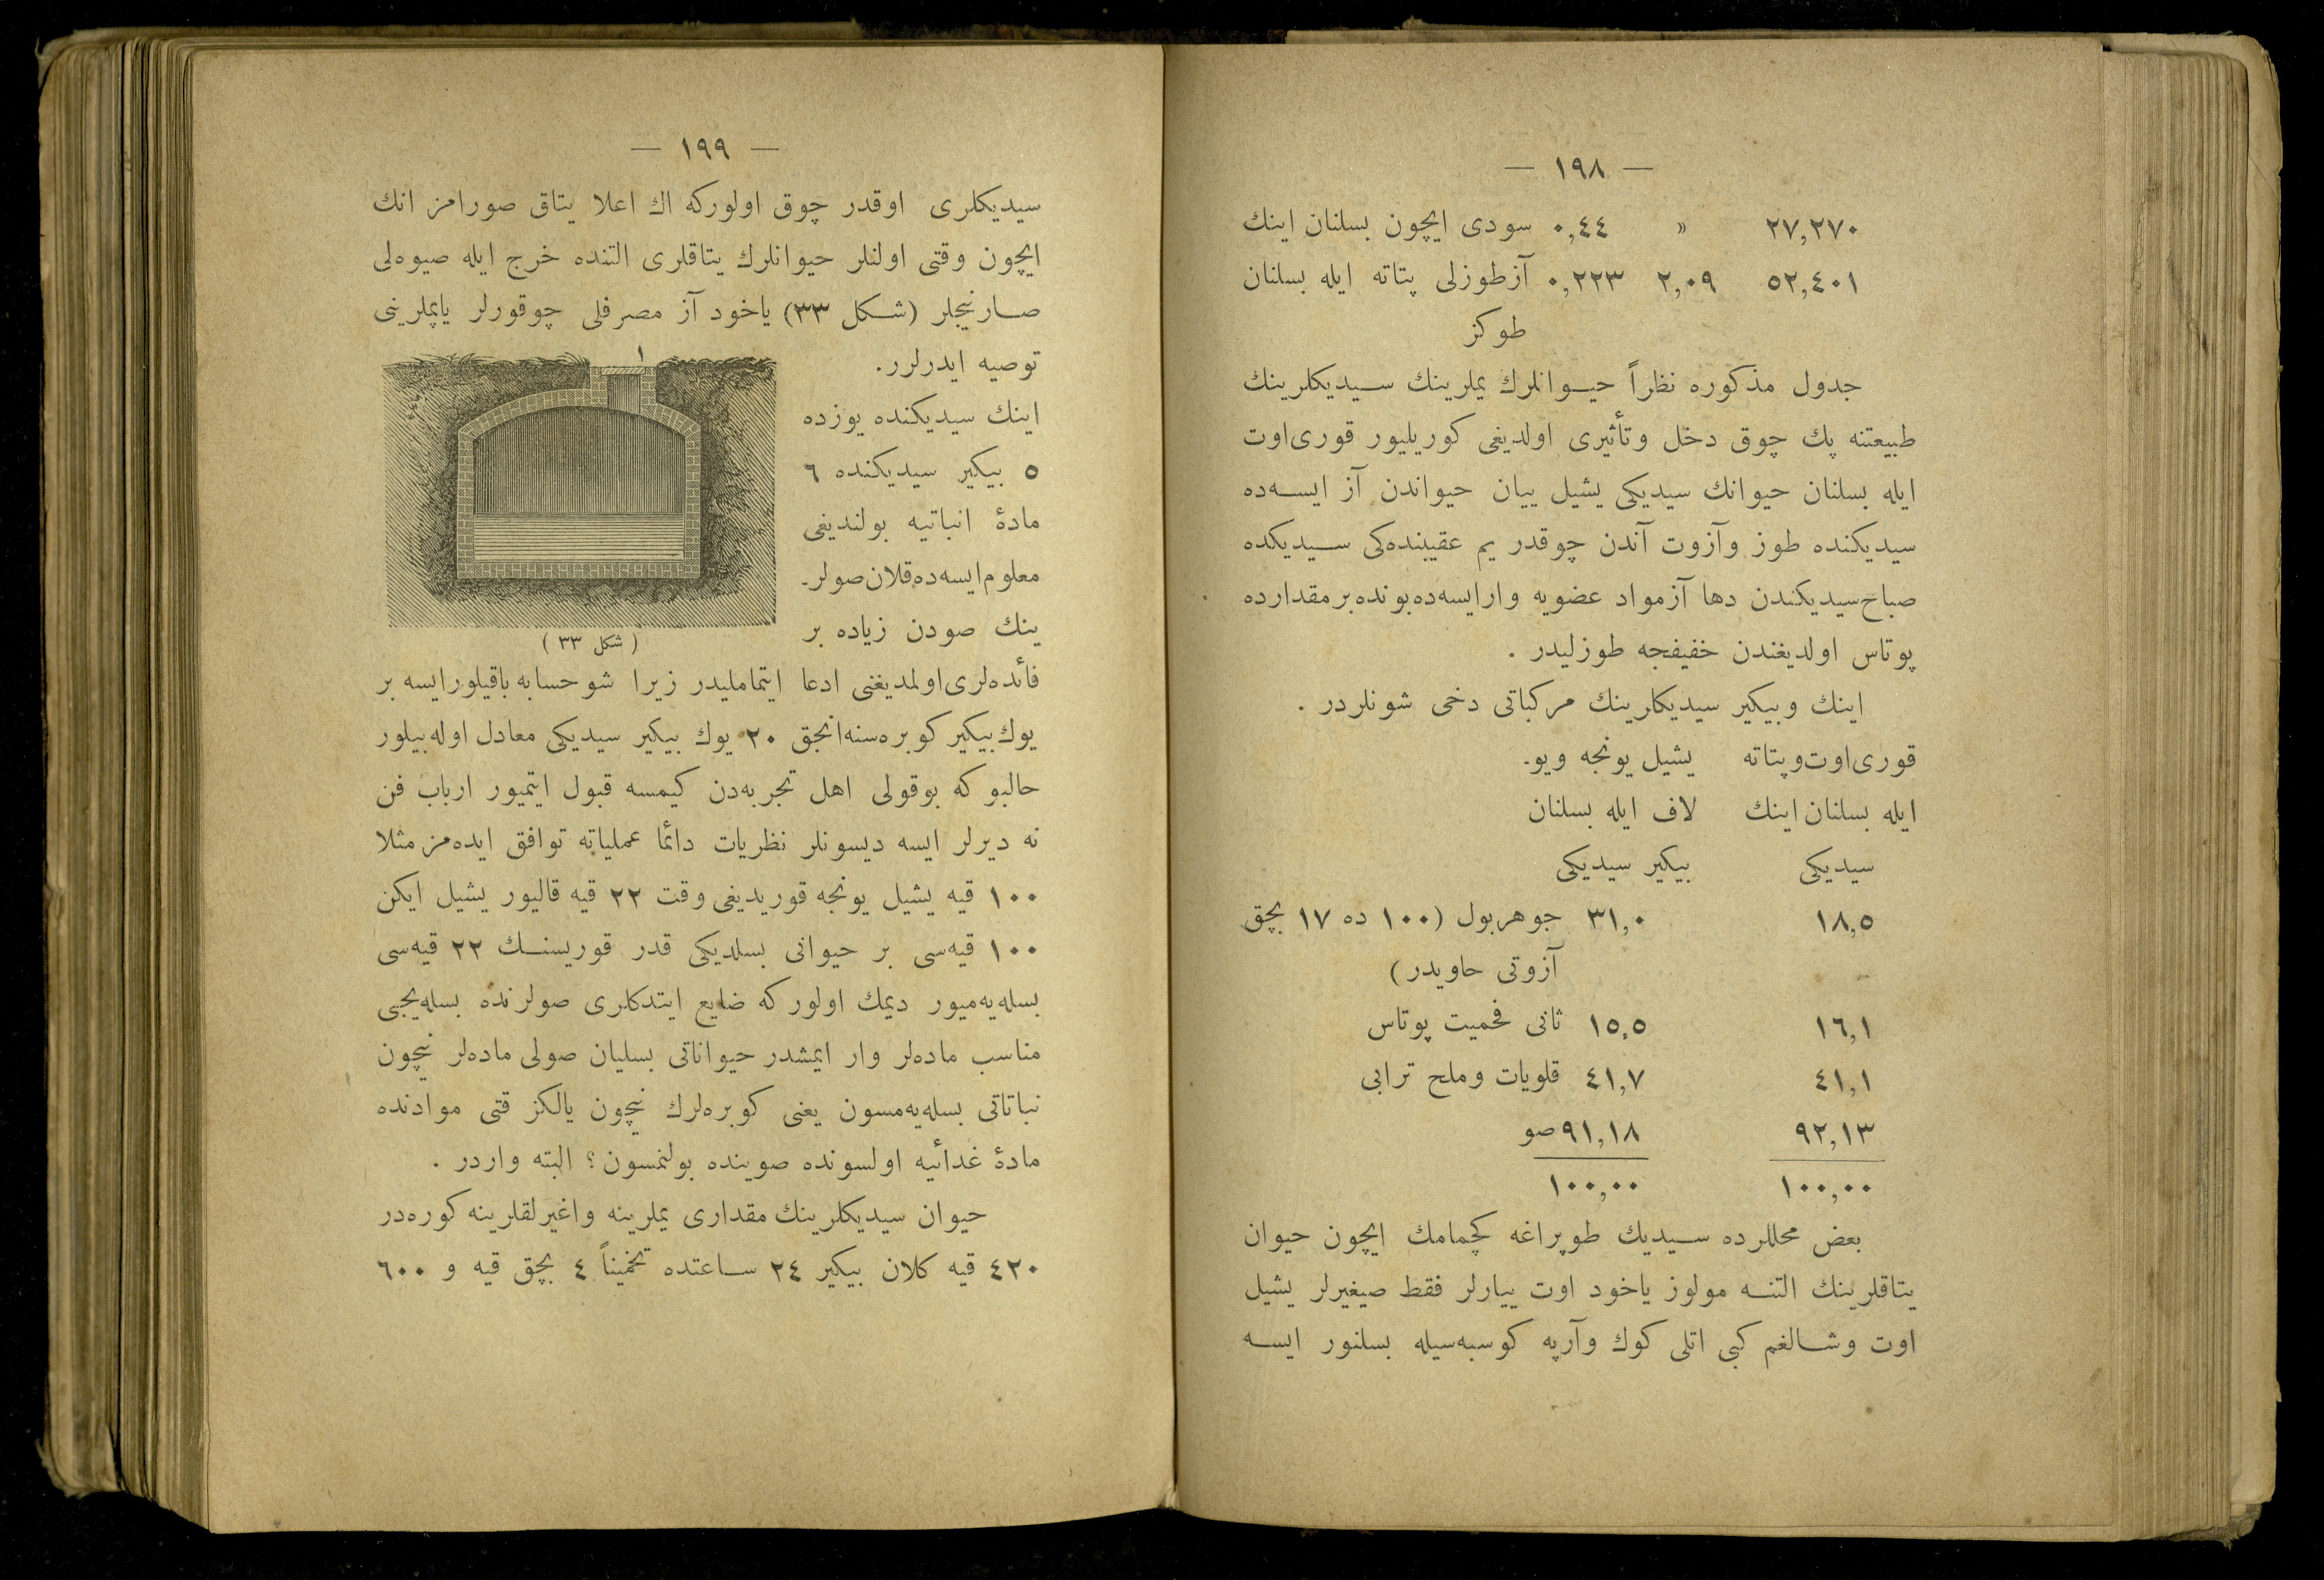 — ١٩٨ —
٢٧,٢٧٠ » ٠,٤٤ سودی ایچون بسلنان اینك
٥٢,٤٠١ ٢,٠٩ ٠,٢٢٣ آزطوزلی پتاته ایله بسلنان
طوكز
جدول مذكوره نظراً حیوانلرك یملرینك سیدیكلرینك
طبیعتنه پك چوق دخل وتأثیری اولدیغی كوریلیور قوری‌اوت
ایله بسلنان حیوانك سیدیكی یشیل ییان حیواندن آز ایسه‌ده
سیدیكنده طوز وآزوت آندن چوقدر یم عقیبنده‌كی سیدیكده
صباح‌سیدیكندن دها آزمواد عضویه وارایسه‌ده‌بونده‌برمقدارده
پوتاس اولدیغندن خفیفجه طوزلیدر .
اینك وبیكیر سیدیكلرینك مركباتی دخی شونلردر .
قوری‌اوت‌وپتاته یشیل یونجه ویو۔
ایله بسلنان اینك لاف ایله بسلنان
سیدیكی بیكیر سیدیكی
١٨,٥ ٣١,٠ جوهربول (١٠٠ ده ١٧ بچق
آزوتی حاویدر)
١٦,١ ١٥,٥ ثانی فحمیت پوتاس
٤١,١ ٤١,٧ قلویات وملح ترابی
٩٢,١٣ ٩١,١٨ صو
١٠٠,٠٠ ١٠٠,٠٠
بعض محللرده سیدیك طوپراغه كچمامك ایچون حیوان
یتاقلرینك التنه مولوز یاخود اوت ییارلر فقط صیغیرلر یشیل
اوت وشالغم كبی اتلی كوك وآرپه كوسبه‌سیله بسلنور ایسه
— ١٩٩ —
سیدیكلری اوقدر چوق اولوركه اك اعلا یتاق صورامز انك
ایچون وقتی اولنلر حیوانلرك یتاقلری التنده خرج ایله صیوه‌لی
صارنیجلر (شكل ٣٣) یاخود آز مصرفلی چوقورلر یاپملرینی
توصیه ایدرلرر.
اینك سیدیكنده یوزده
٥ بیكیر سیدیكنده ٦
مادهٔ انباتیه بولندیغی
معلوم‌ایسه‌ده‌قلان‌صولر۔
ینك صودن زیاده بر
١
( شكل ٣٣ )
فأئده‌لری‌اولمدیغنی ادعا ایتماملیدر زیرا شوحسابه باقیلورایسه بر
یوك‌بیكیر كوبره‌سنه‌انجق ٢٠ یوك بیكیر سیدیكی معادل اوله‌بیلور
حالبوكه بوقولی اهل تجربه‌دن كیمسه قبول ایتمیور ارباب فن
نه دیرلر ایسه دیسونلر نظریات دائما عملیاته توافق ایده‌مز مثلا
١٠٠ قیه یشیل یونجه قوریدیغی وقت ٢٢ قیه قالیور یشیل ایكن
١٠٠ قیه‌سی بر حیوانی بسلدیكی قدر قوریسنك ٢٢ قیه‌سی
بسله‌یه‌میور دیمك اولوركه ضایع ایتدكلری صولرنده بسله‌یجی
مناسب ماده‌لر وار ایمشدر حیواناتی بسلیان صولی ماده‌لر نیچون
نباتاتی بسله‌یه‌مسون یعنی كوبره‌لرك نیچون یالكز قتی موادنده
مادهٔ غدائیه اولسونده صوینده بولنمسون؟ البته واردر .
حیوان سیدیكلرینك مقداری یملرینه واغیرلقلرینه كوره‌در
٤٢٠ قیه كلان بیكیر ٢٤ ساعتده تخمیناً ٤ بچق قیه و ٦٠٠